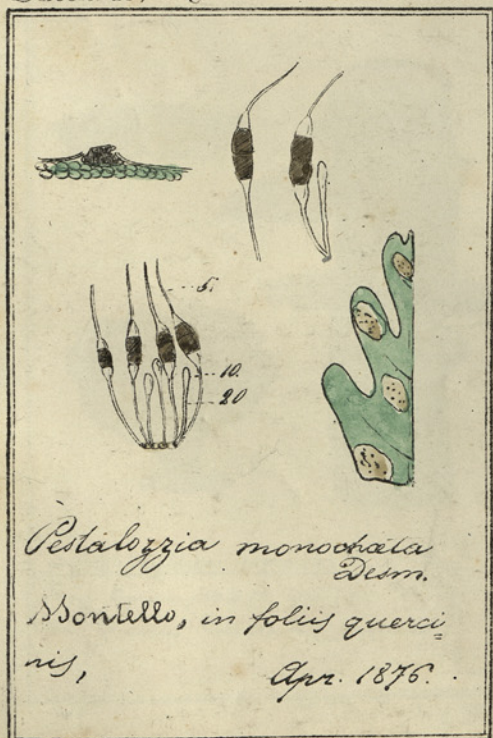 5.
10.
20
Pestalozzia monochæta
Desm.
Montello, in foliis querci=
nis,
Apr. 1876.